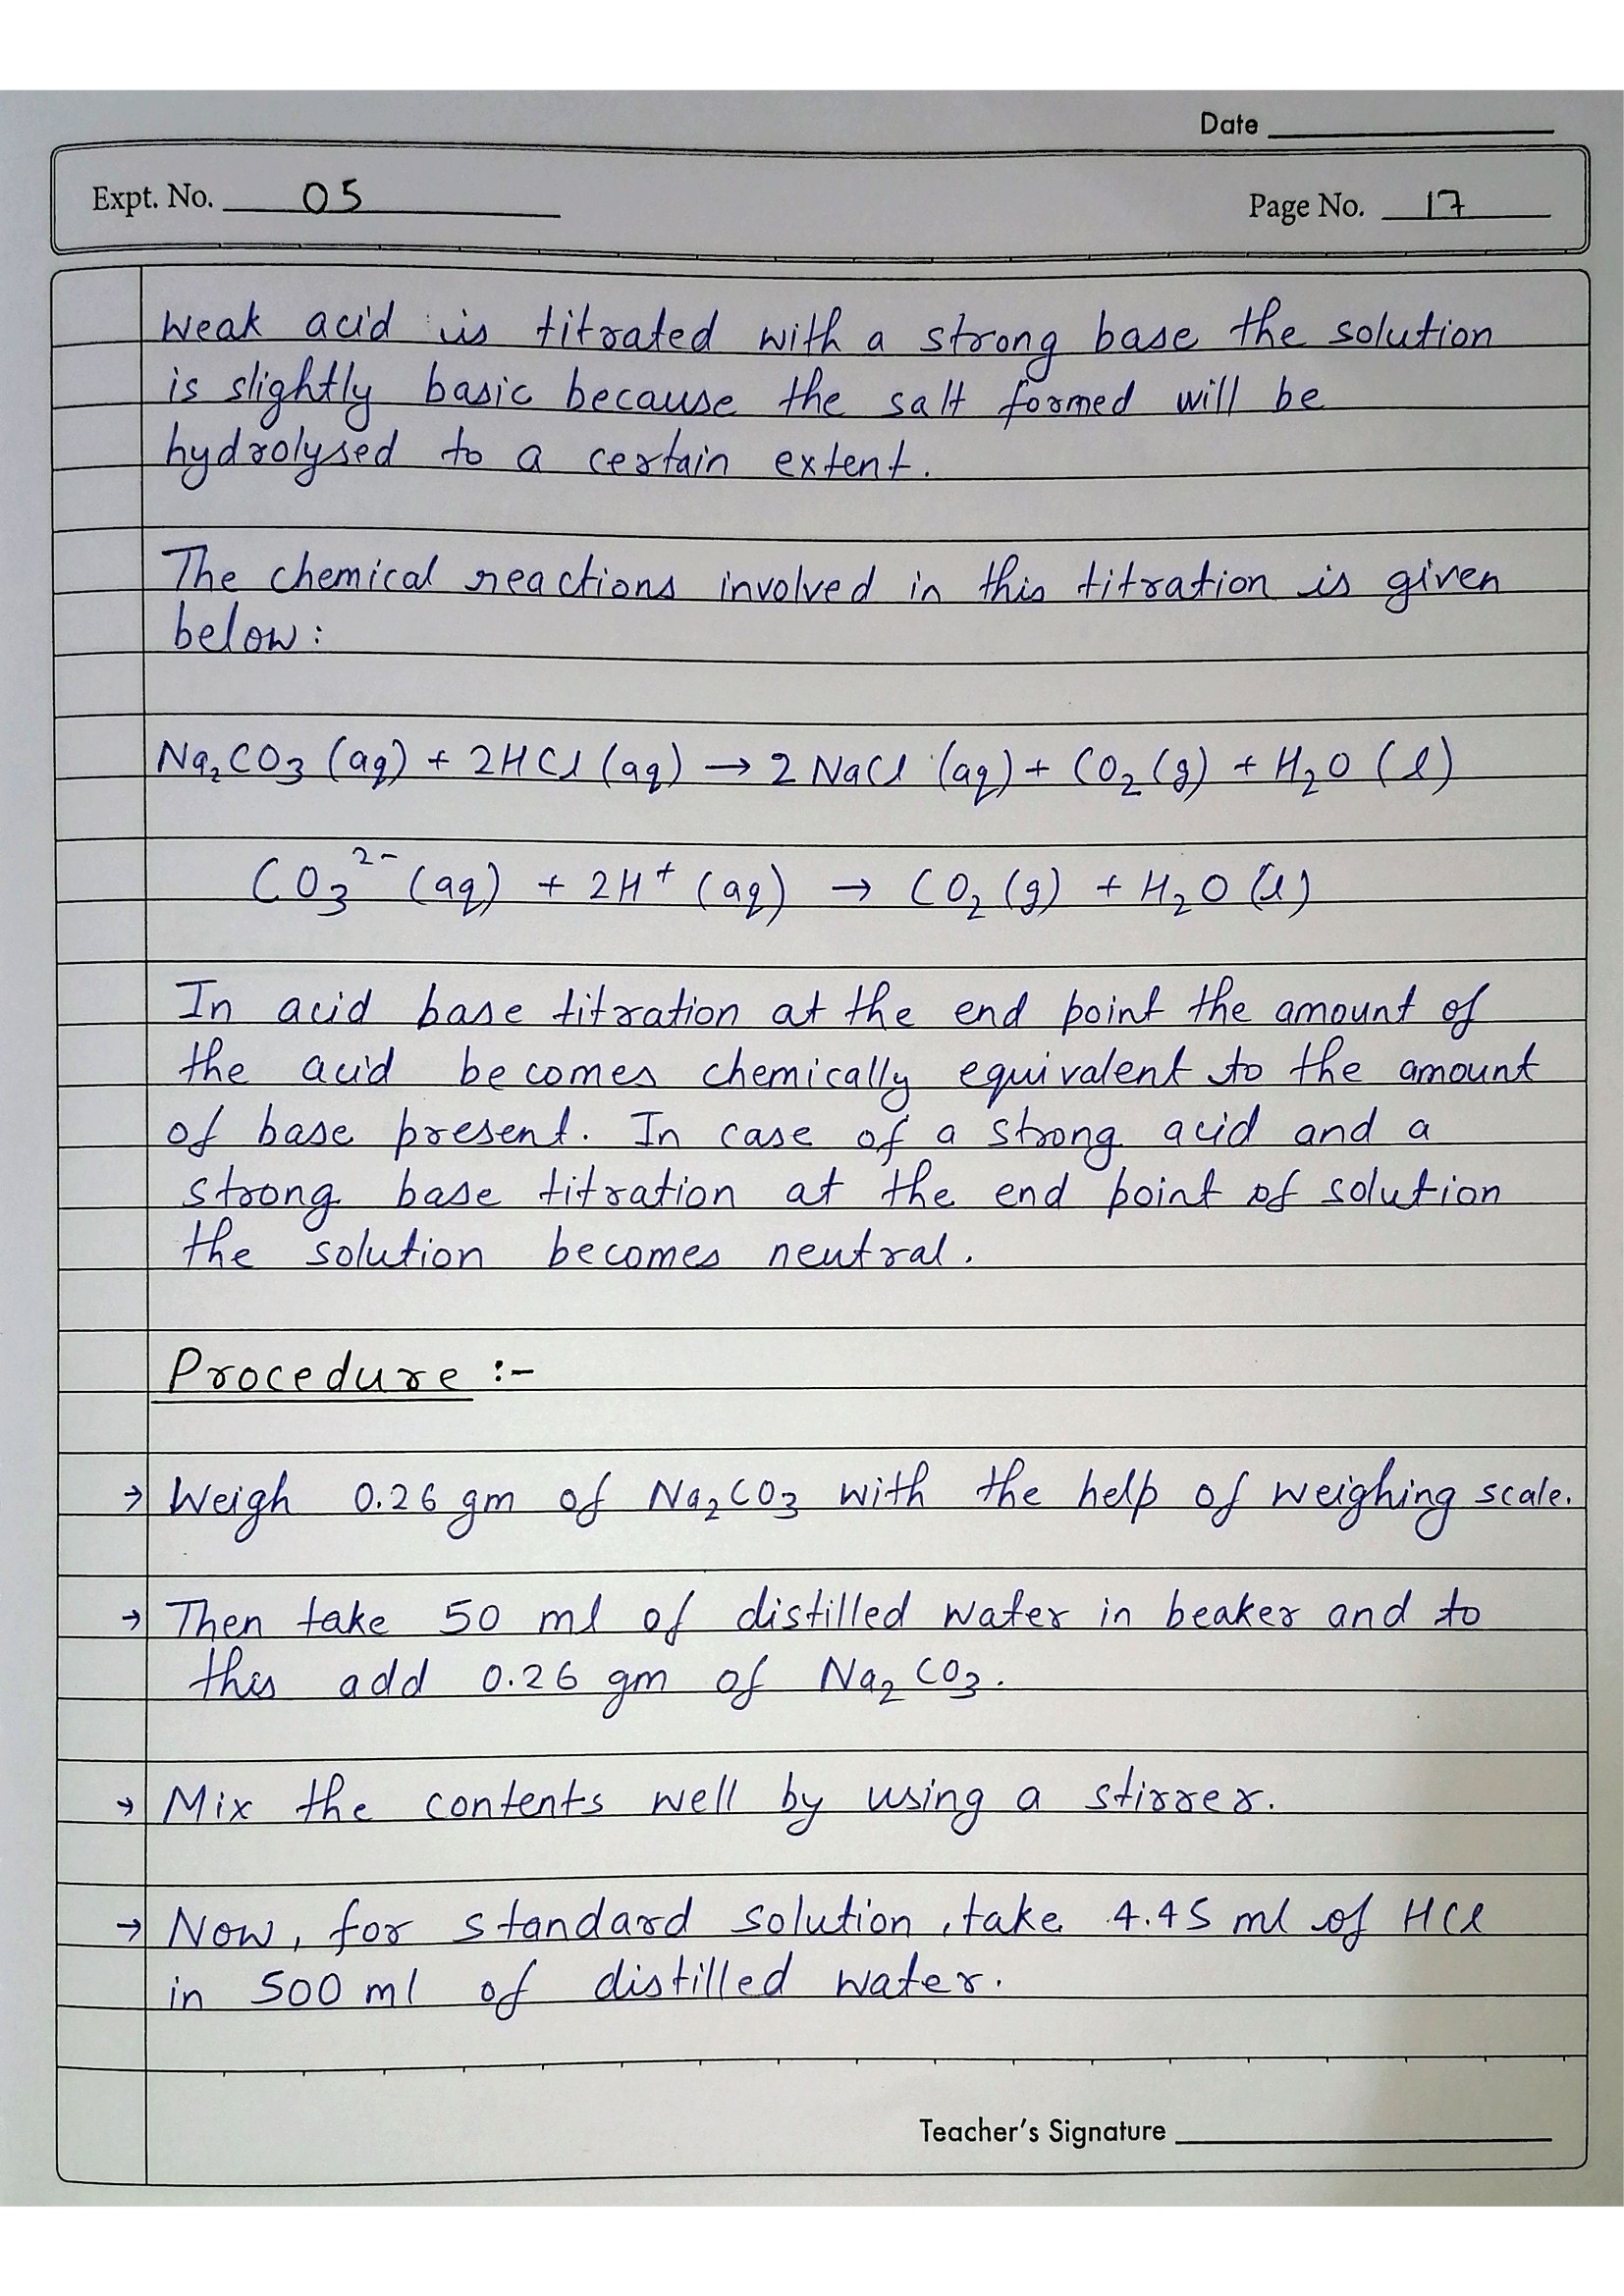 Date
Expt. No. 05
Page No. 17
Weak acid is titrated with a strong base the solution
is slightly basic because the salt formed will be
hydrolysed to a certain extent.
The chemical reactions involved in this titration is given
below:
Na₂CO₃ (aq) + 2HCl (aq) → 2 NaCl (aq) + CO₂ (g) + H₂O (l)
CO₃²⁻ (aq) + 2H⁺ (aq) → CO₂ (g) + H₂O (l)
In acid base titration at the end point the amount of
the acid becomes chemically equivalent to the amount
of base present. In case of a strong acid and a
strong base titration at the end point of solution
the solution becomes neutral.
Procedure :-
→ Weigh 0.26 gm of Na₂CO₃ with the help of weighing scale.
→ Then take 50 ml of distilled water in beaker and to
this add 0.26 gm of Na₂CO₃.
→ Mix the contents well by using a stirrer.
→ Now, for standard solution, take 4.45 ml of HCl
in 500 ml of distilled water.
Teacher's Signature